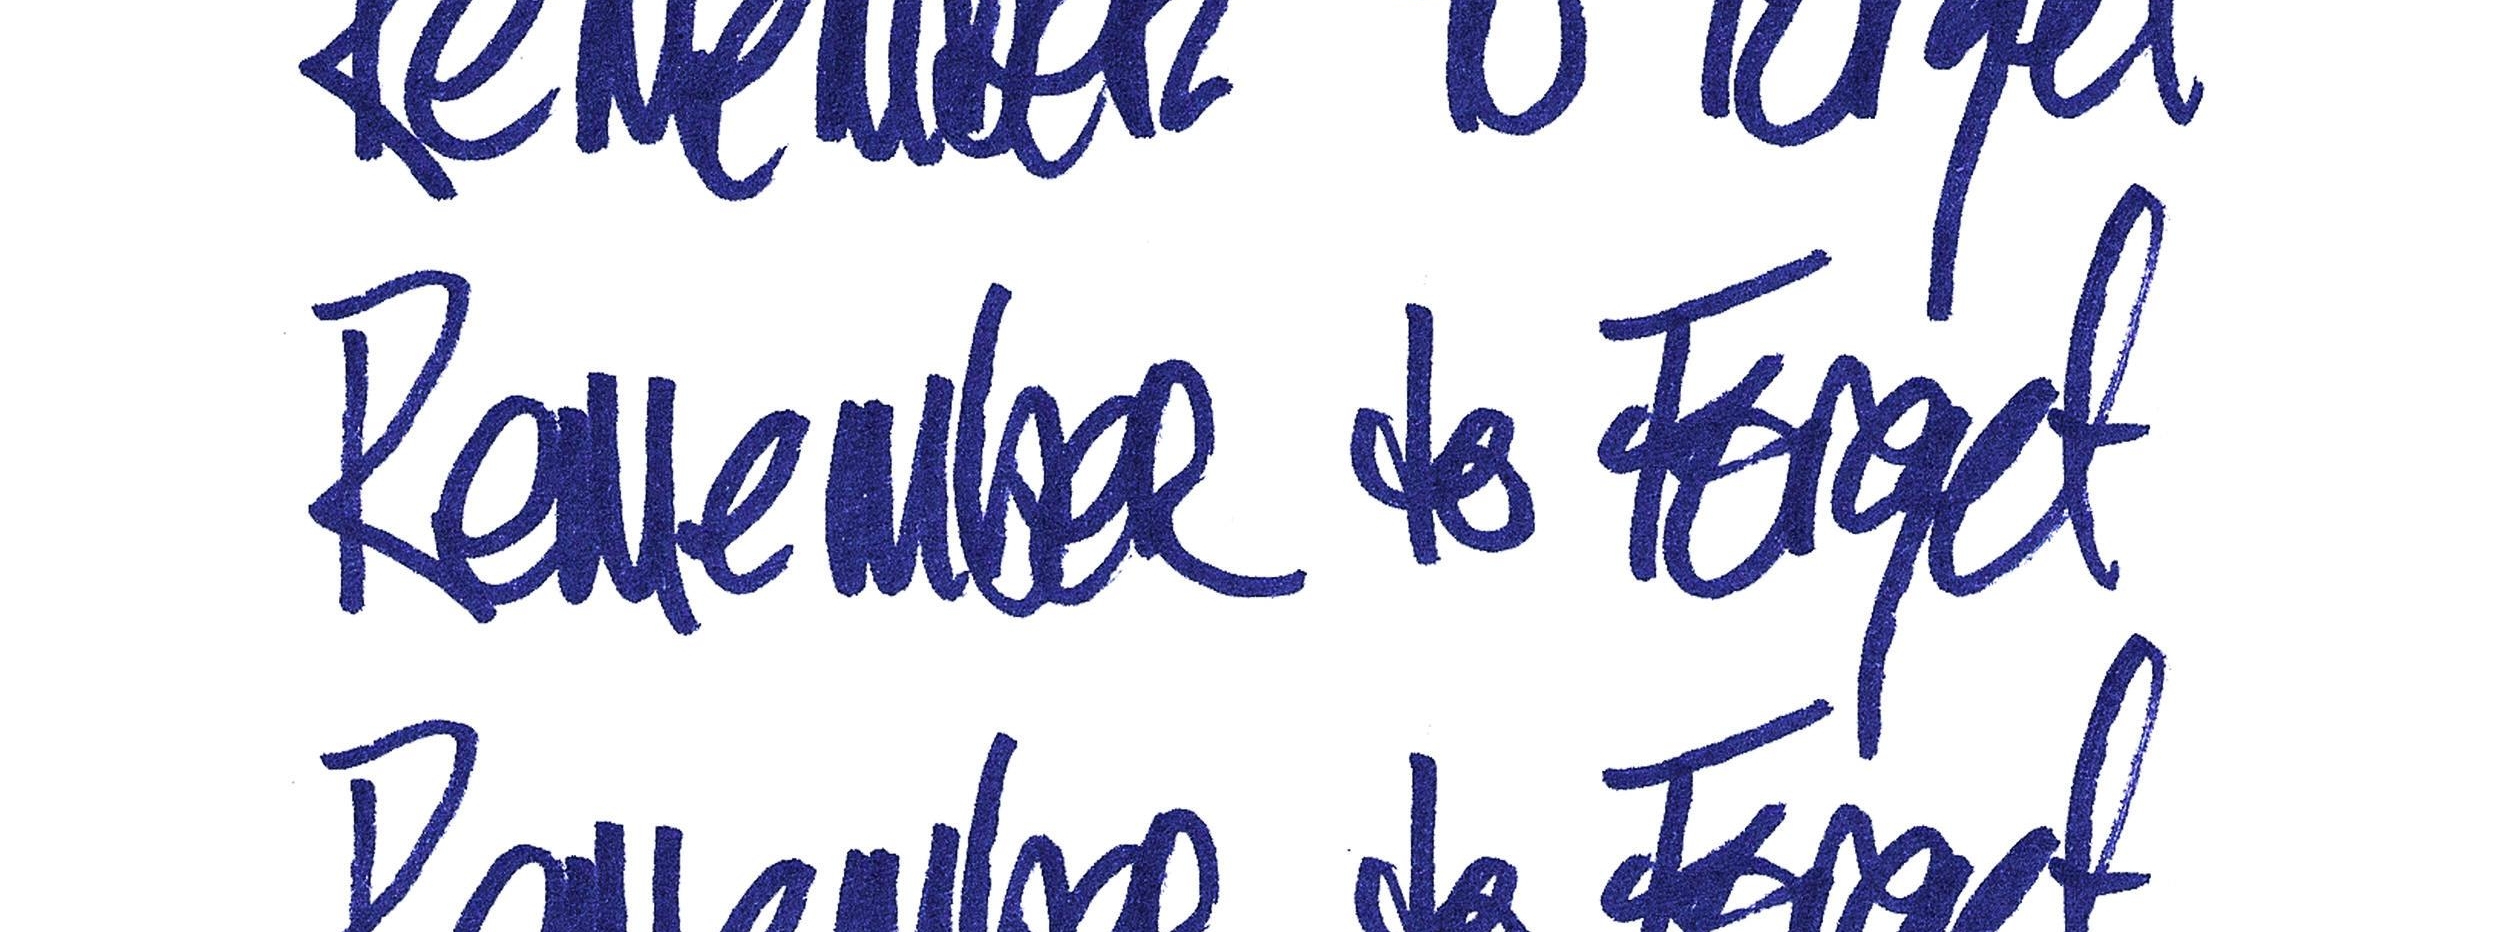 Remember to Forget
Remember to Forget
Remember to Forget